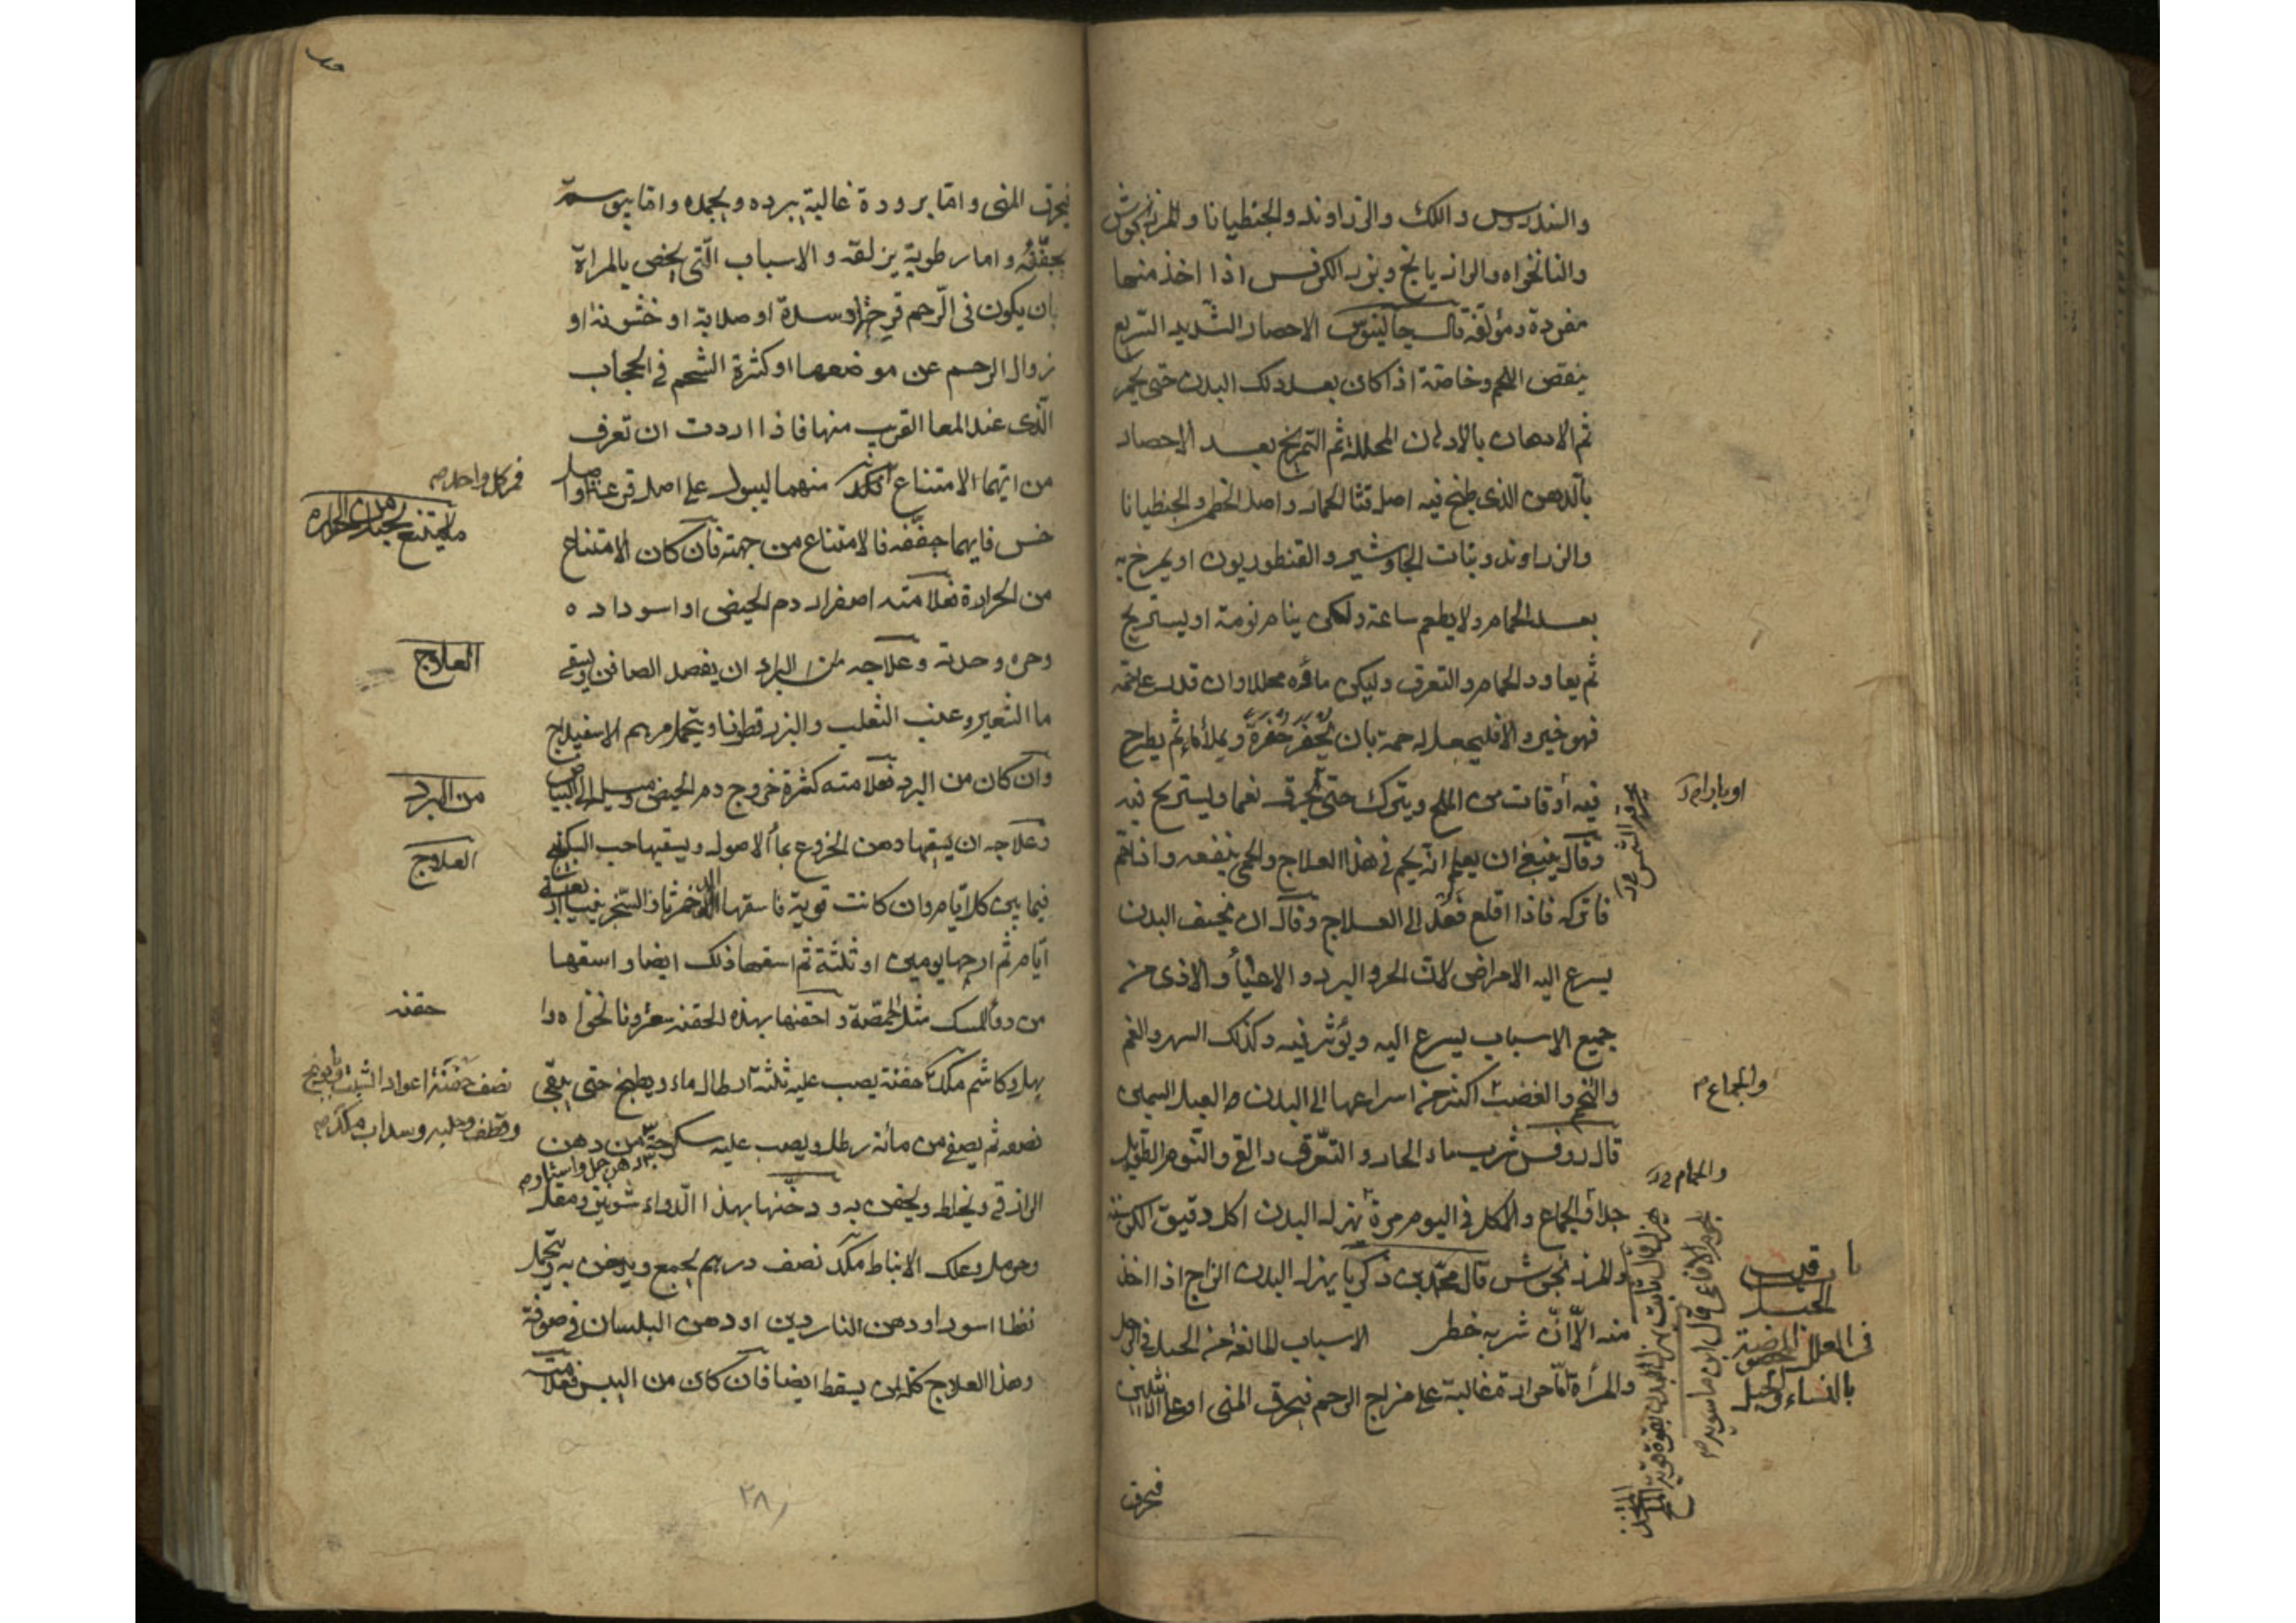 والسندروس واللك والزراوند والجنطيانا والمرزنجوش
والنانخواه والرازيانج وبزر الكرفس اذا اخذ منها
مفردة ومؤلفة قال جالينوس الاحصار الشديد السريع
ينقص اللحم وخاصة اذا كان بعد دلك البدن حتى يحمر
ثم الادهان بالادهان المحللة ثم التمريخ بعد الاحصار
بالدهن الذى طبخ فيه اصل قثا الحمار واصل الخطمى والجنطيانا
والزراوند ونبات الجاوشير والقنطوريون او يمرخ به
بعد الحمام ولا يطعم ساعة ولكن ينام نومة او يستريح
ثم يعاود الحمام والتعرق وليكن ماؤه محللا وان قدر على حمة
فهو خير والا فليجعل له حمة بان يحفر حفرة ويملأ ماء ثم يطرح
فيه أوقات من الملح ويترك حتى يحرق نعما ويستريح فيه
وقال ينبغى ان يعلم انه يحم فى هذا العلاج والحمى ينفعه واذا حم
فاتركه فاذا اقلع فعد الى العلاج وقال ان نحيف البدن
يسرع اليه الامراض لان الحر والبرد والاعياء والاذى من
جميع الاسباب يسرع اليه ويؤثر فيه وكذلك السهر والغم
والتخم والغضب اكثر من اسراعها الى البدن العبل السمين
قال روفس شرب الماء الحار والتعرق والقئ والنوم الطويل
جدا والجماع والاكل فى اليوم مرة يهزل البدن اكل دقيق الكرسنة
والمرزنجوش قال محمد بن زكريا يهزل البدن الزاج اذا اخذ
منه الا ان شربه خطر الاسباب المانعة من الحبل فى الرجل
والمرأة اما حرارة غالبة على مزاج الرحم فيحرق المنى او على الانثيين
فيحرق
او بادام
والجماع
والحمام
باب قرب
الحبل
فى العلل
بالنساء والحبل
فيحرق المنى واما برودة غالبة يبرده ويجمده واما يبوسة
يجففه واما رطوبة يزلقه والاسباب التى يخص بالمراة
بان يكون فى الرحم قرحة او سدة او صلابة او خشونة او
زوال الرحم عن موضعها او كثرة الشحم فى الحجاب
الذى عند المعا القريب منها فاذا اردت ان تعرف
من ايهما الامتناع منهما ليبول على اصل قرعة او اصل
خس فايهما جففه فالامتناع من جهته فان كان الامتناع
من الحرارة فعلامته اصفرار دم الحيض او اسوداده
وحره وحدته وعلاجه ان يفصد الصافن ويسقى
ما الشعير وعنب الثعلب والبزرقطونا ويتحمل مرهم الاسفيداج
وان كان من البرد فعلامته كثرة خروج دم الحيض وميله الى البياض
وعلاجه ان يسقيها دهن الخروع بماء الاصول ويسقيها حب السكبينج
فيما بين كل ايام وان كانت قوية فاسقها
ايام ثم ارحها يومين او ثلثة ثم اسقها ذلك ايضا واسقها
من دواء المسك مثل الحمصة واحقنها بهذه الحقنة سعد ونانخواه وا
بهل وكاشم مكد حفنة يصب عليه ثلثة ارطال ماء ويطبخ حتى يبقى
نصفه ثم يصفى من مائه رطل ويصب عليه سكرجة من دهن
الرازقى ويخلط ويحقن به ودخنها بهذا الدواء شونيز ومقل
وحرمل وعلك الانباط مكد نصف درهم يجمع ويدخن به ويتحمل
نفطا اسود او دهن الناردين او دهن البلسان فى صوفة
وهذا العلاج كله لمن يسقط ايضا فان كان من اليبس فعلامته
فى كل واحد
العلاج
من البرد
العلاج
حقنه
نصف حفنة اعواد الشبث
٢٨